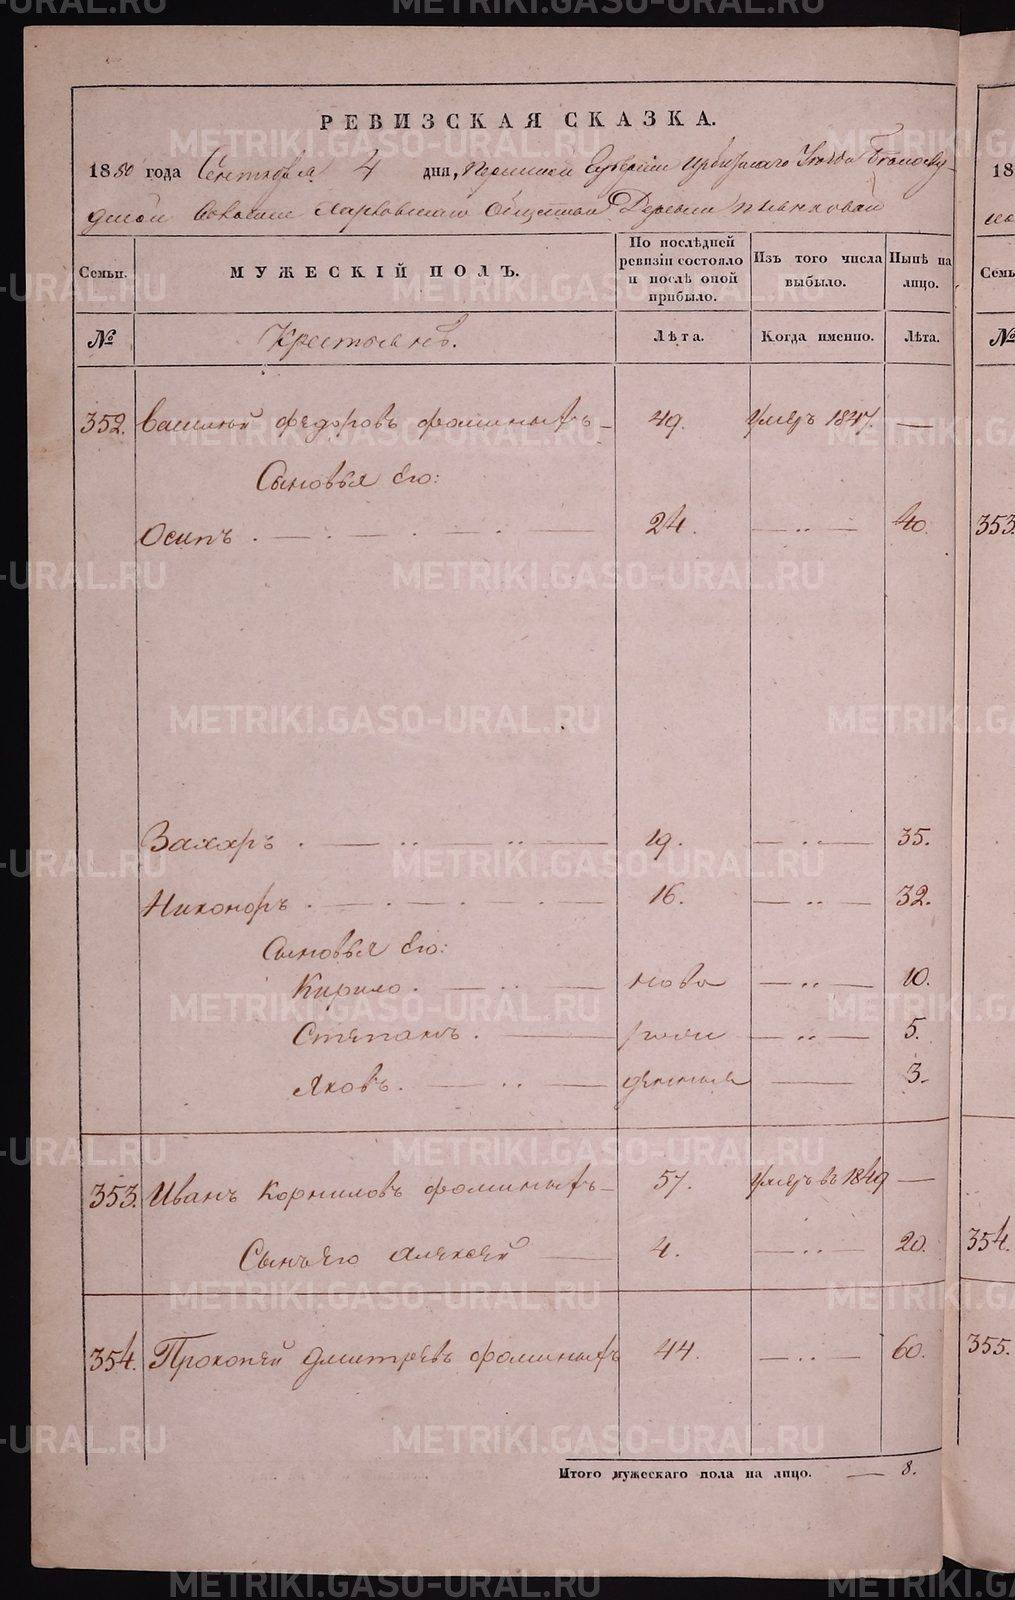 РЕВИЗСКАЯ СКАЗКА.
1850 года Сентября 4 дня, Пермской Губернии Ирбитскаго Уезда Белослу-
дской Волости Харловскаго Общества Деревни
Семьи. МУЖЕСКІЙ ПОЛЪ. По послѣдней ревизіи состояло и послѣ оной прибыло. Изъ того числа выбыло. Нынѣ на лицо.
№ Крестьянъ. Лѣта. Когда именно. Лѣта.
352. Василий Федоровъ Фоминыхъ 49. умеръ 1847. —
Сыновья Его:
Осипъ 24. — 40.
Захаръ 19. — 35.
Никоноръ 16. — 32.
Сыновья Его:
Кирило ново — 10.
Степанъ рож — 5.
Яковъ денныя — 3.
353. Иванъ Корниловъ Фоминыхъ 57. умеръ въ 1849 —
Сынъ Его Алексей 4. — 20.
354. Прокопей Дмитревъ Фоминыхъ 44. — 60.
Итого мужескаго пола на лицо. — 8.
18
Семь
№
353
354.
355.
METRIKI.GASO-URAL.RU